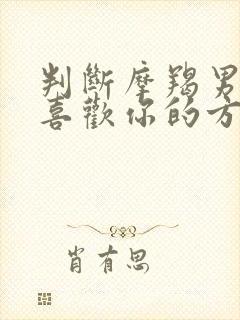 判斷摩羯男
喜歡你的方
肖有思